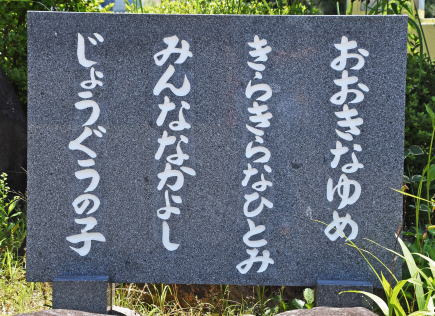 おおきなゆめ
きらきらなひとみ
みんななかよし
じょうぐうの子